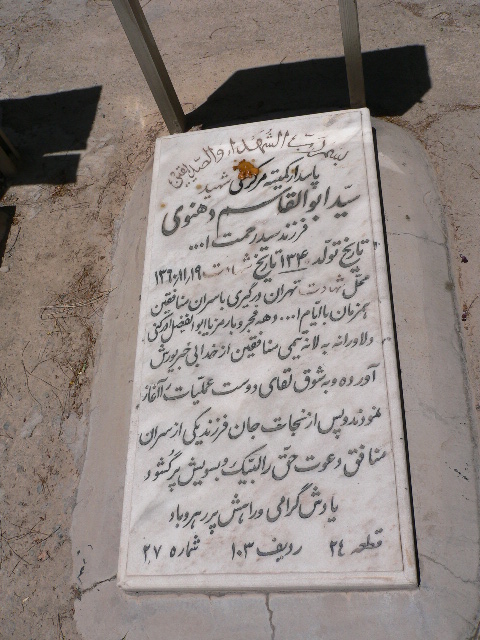 بسم رب الشهداء والصدیقین
پاسدار کمیته مرکزی شهید
سید ابوالقاسم دهنوی
فرزند سید رحمت ا...
تاریخ تولد ۱۳۴۰ تاریخ شهادت ۱۳۶۰/۱۱/۱۹
محل شهادت تهران درگیری با سران منافقین
همزمان با ایام ا... دهه فجر و با رمز یا ابوالفضل ادرکنی
دلاورانه به لانه تیمی منافقین از خدا بی خبر یورش
آورده و به شوق لقای دوست عملیات را آغاز
نمودند و پس از نجات جان فرزند یکی از سران
منافق دعوت حق را لبیک و بسویش پر گشود
یادش گرامی و راهش پر رهرو باد
قطعه ۲۴ ردیف ۱۰۳ شماره ۲۷